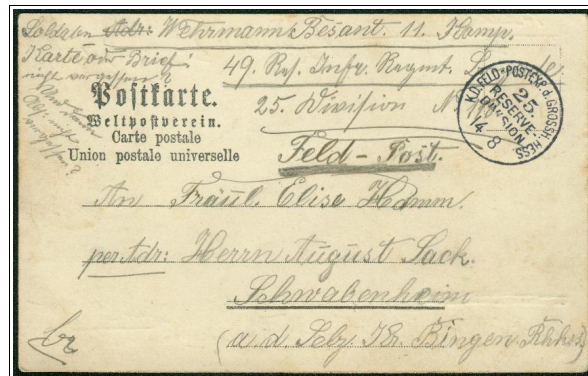 Soldaten Adr: Wehrmann Besant. 11. Komp.
Karte oder Brief!
nicht vergessen?
49. Res. Infr. Regmt.
25. Division
Und dann
nicht
vergessen?
Postkarte.
Weltpostverein.
Carte postale
Union postale universelle
K.D.FELD-POSTEXP. d. GROSSH. HESS.
25.
RESERVE-
DIVISION
14 8
Feld-Post.
An Fräul. Elise Hamm.
per Adr: Herrn August Sack.
Schwabenheim
(a. d. Selz. Kr. Bingen Rhhss)